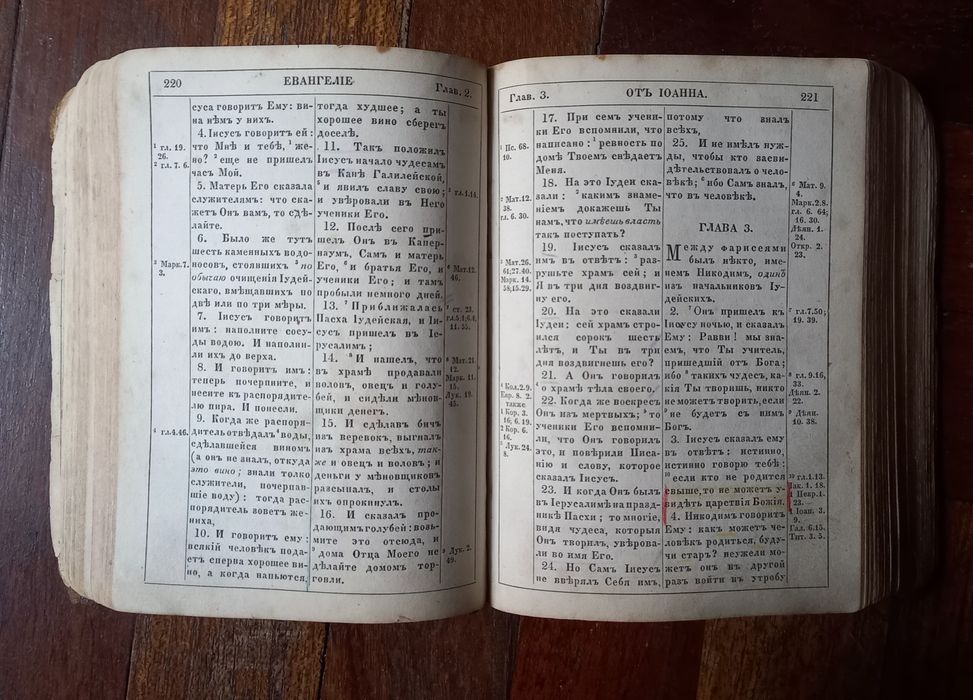 220
ЕВАНГЕЛІЕ
Глав. 2.
суса говоритъ Ему: ви-
на нѣмъ у нихъ.
4. Іисусъ говоритъ ей:
что Мнѣ и тебѣ, ¹же-
но? ² еще не пришелъ
часъ Мой.
5. Матерь Его сказала
служителямъ: что ска-
жетъ Онъ вамъ, то сдѣ-
лайте.
6. Было же тутъ
шесть каменныхъ водо-
носовъ, стоявшихъ ³ по
обычаю очищенія Іудей-
скаго, вмѣщавшихъ по
двѣ или по три мѣры.
7. Іисусъ говоритъ
имъ: наполните сосу-
ды водою. И наполни-
ли ихъ до верха.
8. И говоритъ имъ:
теперь почерпните, и
несите къ распорядите-
лю пира. И понесли.
9. Когда же распоря-
дитель отвѣдалъ ⁴ воды,
сдѣлавшейся виномъ
(а онъ не зналъ, откуда
это вино; знали только
служители, почерпав-
шіе воду): тогда рас-
порядитель зоветъ же-
ниха,
10. И говоритъ ему:
всякій человѣкъ пода-
етъ сперва хорошее ви-
но, а когда напьются,
¹ гл. 19.
26.
² гл. 7. 6.
³ Марк. 7.
3.
⁴ гл. 4. 46.
тогда худшее; а ты
хорошее вино сберегъ
доселѣ.
11. Такъ положилъ
Іисусъ начало чудесамъ
въ Канѣ Галилейской,
⁵ и явилъ славу свою;
и увѣровали въ Него
ученики Его.
12. Послѣ сего при-
шелъ Онъ въ Капер-
наумъ, Самъ и матерь
Его, ⁶ и братья Его, и
ученики Его; и тамъ
пробыли немного дней.
13. ⁷ Приближалась
Пасха Іудейская, и Іи-
сусъ пришелъ въ Іе-
русалимъ;
14. ⁸ И нашелъ, что
въ храмѣ продавали
воловъ, овецъ и голу-
бей, и сидѣли мѣнов-
щики денегъ.
15. И сдѣлавъ бичъ
изъ веревокъ, выгналъ
изъ храма всѣхъ, так-
же и овецъ и воловъ; и
деньги у мѣновщиковъ
разсыпалъ, и столы
ихъ опрокинулъ.
16. И сказалъ про-
дающимъ голубей: возь-
мите это отсюда, и
⁹ дома Отца Моего не
дѣлайте домомъ тор-
говли.
⁵ гл. 1. 14.
⁶ Мат. 12.
46.
⁷ ст. 23.
гл. 5. 1, 6. 4,
11. 55.
⁸ Мат. 21.
12.
Марк. 11.
15.
Лук. 19.
45.
⁹ Лук. 2.
49.
Глав. 3.
ОТЪ ІОАННА.
221
17. При семъ учени-
ки Его вспомнили, что
написано: ¹ ревность по
домѣ Твоемъ снѣдаетъ
Меня.
18. На это Іудеи ска-
зали: ² какимъ знаме-
ніемъ докажешь Ты
намъ, что имѣешь власть
такъ поступать?
19. Іисусъ сказалъ
имъ въ отвѣтъ: ³ раз-
рушьте храмъ сей; и
Я въ три дня воздвиг-
ну его.
20. На это сказали
Іудеи: сей храмъ стро-
ился сорокъ шесть
лѣтъ, и Ты въ три
дня воздвигнешь его?
21. А Онъ говорилъ
⁴ о храмѣ тѣла своего.
22. Когда же воскресъ
Онъ изъ мертвыхъ; ⁵ то
ученики Его вспомни-
ли, что Онъ говорилъ
это, и повѣрили Писа-
нію и слову, которое
сказалъ Іисусъ.
23. И когда Онъ былъ
въ Іерусалимѣ на празд-
никѣ Пасхи; то многіе,
видя чудеса, которыя
Онъ творилъ, увѣрова-
ли во имя Его.
24. Но Самъ Іисусъ
не ввѣрялъ Себя имъ,
¹ Пс. 68.
10.
² Мат. 12.
38.
гл. 6. 30.
³ Мат. 26.
61; 27. 40.
Марк. 14.
58; 15. 29.
⁴ Кол. 2. 9.
Евр. 8. 2.
также
1 Кор. 3.
16; 6. 19.
2 Кор. 6.
16.
⁵ Лук. 24.
8.
потому что зналъ
всѣхъ,
25. И не имѣлъ нуж-
ды, чтобы кто засви-
дѣтельствовалъ о чело-
вѣкѣ; ⁶ ибо Самъ зналъ,
что въ человѣкѣ.
ГЛАВА 3.
Между фарисеями
былъ нѣкто, име-
немъ Никодимъ, одинъ
изъ начальниковъ Іу-
дейскихъ.
2. ⁷ Онъ пришелъ къ
Іисусу ночью, и сказалъ
Ему: Равви! мы зна-
емъ, что Ты учитель,
пришедшій отъ Бога;
ибо ⁸ такихъ чудесъ, ка-
кія Ты творишь, никто
не можетъ творить, если
⁹ не будетъ съ нимъ
Богъ.
3. Іисусъ сказалъ ему
въ отвѣтъ: истинно,
истинно говорю тебѣ:
¹⁰ если кто не родится
свыше, то не можетъ у-
видѣть царствія Божія.
4. Никодимъ говоритъ
Ему: какъ можетъ че-
ловѣкъ родиться, буду-
чи старъ? неужели мо-
жетъ онъ въ другой
разъ войти въ утробу
⁶ Мат. 9.
4.
Марк. 2. 8.
гл. 6. 64;
16. 30.
Дѣян. 1.
24.
Откр. 2.
23.
⁷ гл. 7. 50;
19. 39.
⁸ гл. 9. 16,
33.
Дѣян. 2.
22.
⁹ Дѣян.
10. 38.
¹⁰ гл. 1. 13.
Іак. 1. 18.
1 Петр. 1.
23.
1 Іоан. 3.
9.
Гал. 6. 15.
Тит. 3. 5.